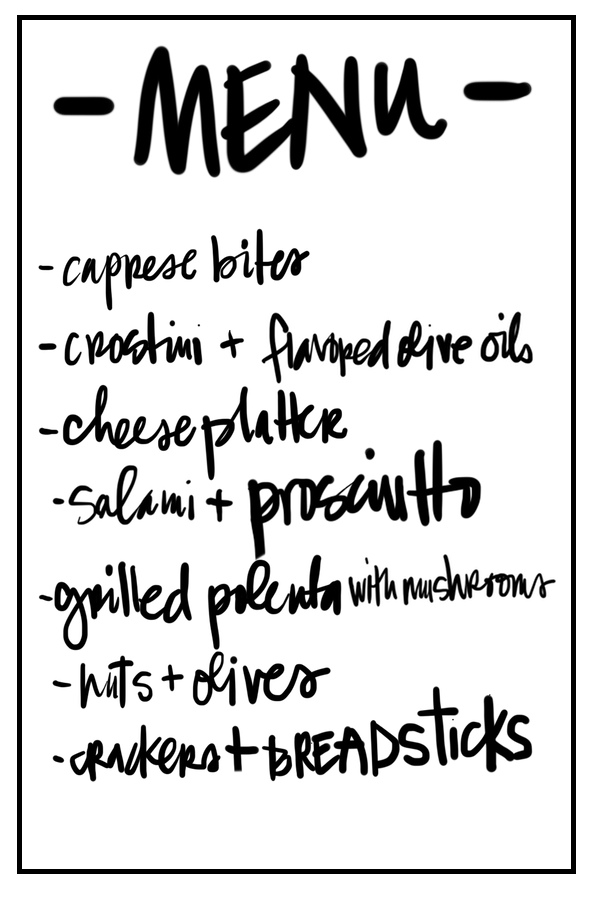 - MENU -
- caprese bites
- crostini + flavored olive oils
- cheese platter
- salami + prosciutto
- grilled polenta with mushrooms
- nuts + olives
- crackers + BREADSticks